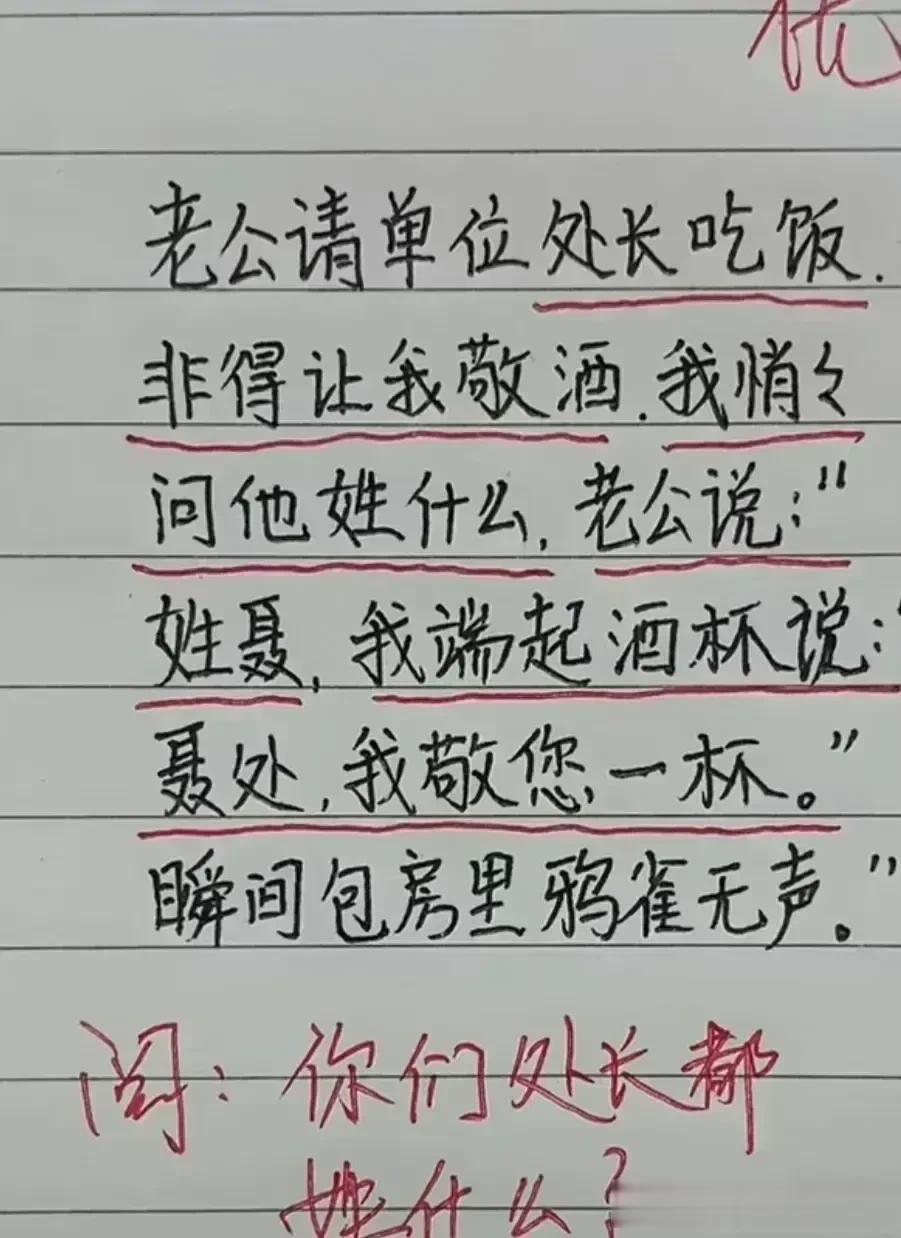 优
老公请单位处长吃饭.
非得让我敬酒.我悄々
问他姓什么,老公说:"
姓聂,我端起酒杯说:"
聂处,我敬您一杯。"
瞬间包房里鸦雀无声。"
阅:你们处长都
姓什么?